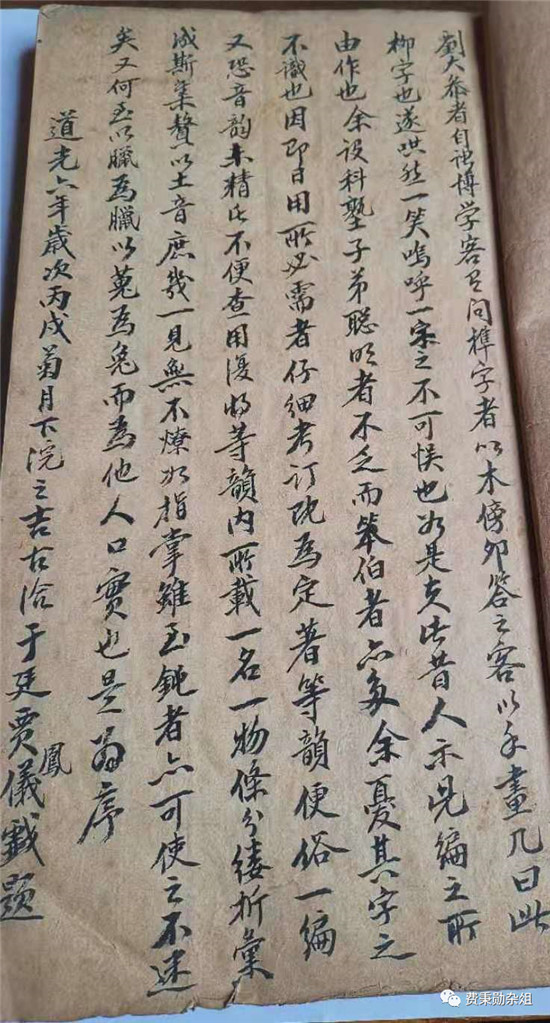 劉大爺者自詑博学客有问榫字者以木傍夘答之客以手畫几曰此
柳字也遂哄然一笑嗚呼一字之不可悮也如是夫此昔人示児編之所
由作也余设科塾子弟聪明者不乏而笨伯者亦多余憂其字之
不識也因即日用所必需者仔细考订既為定著等韻便俗一编
又恐音韻未精氏不便查用復将等韻内所載一名一物條分缕析彙
成斯集贅以土音庶幾一見無不燎如指掌雖至鈍者亦可使之不迷
矣又何至以臘為臘以菟為兔而為他人口實也是為序
道光六年歲次丙戌菊月下浣之吉古洽于廷賈儀鳳戲題
费秉勋杂俎